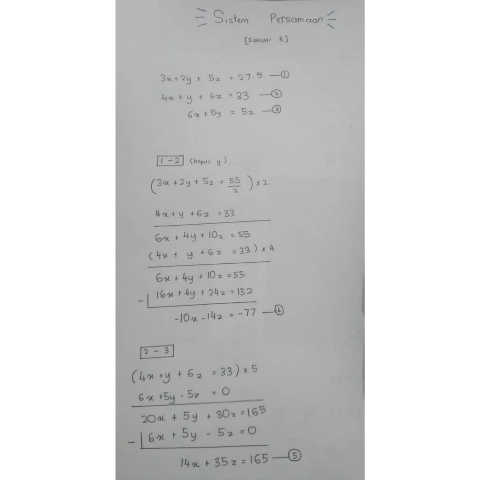 Sistem Persamaan
3x+2y + 5z = 27.5 —①
4x+y + 6z = 33 —②
6x+5y = 5z —③
1 - 2 (hapus y)
(3x+2y+5z = 55/2) x2
4x+y +6z = 33
6x + 4y + 10z = 55
(4x + y + 6z = 33) x 4
6x + 4y + 10z = 55
- 16x + 4y + 24z = 132
-10x -14z = -77 —④
2 - 3
(4x +y + 6z = 33) x 5
6x +5y - 5z = 0
20x + 5y + 30z = 165
- 6x + 5y - 5z = 0
14x + 35z = 165 —⑤